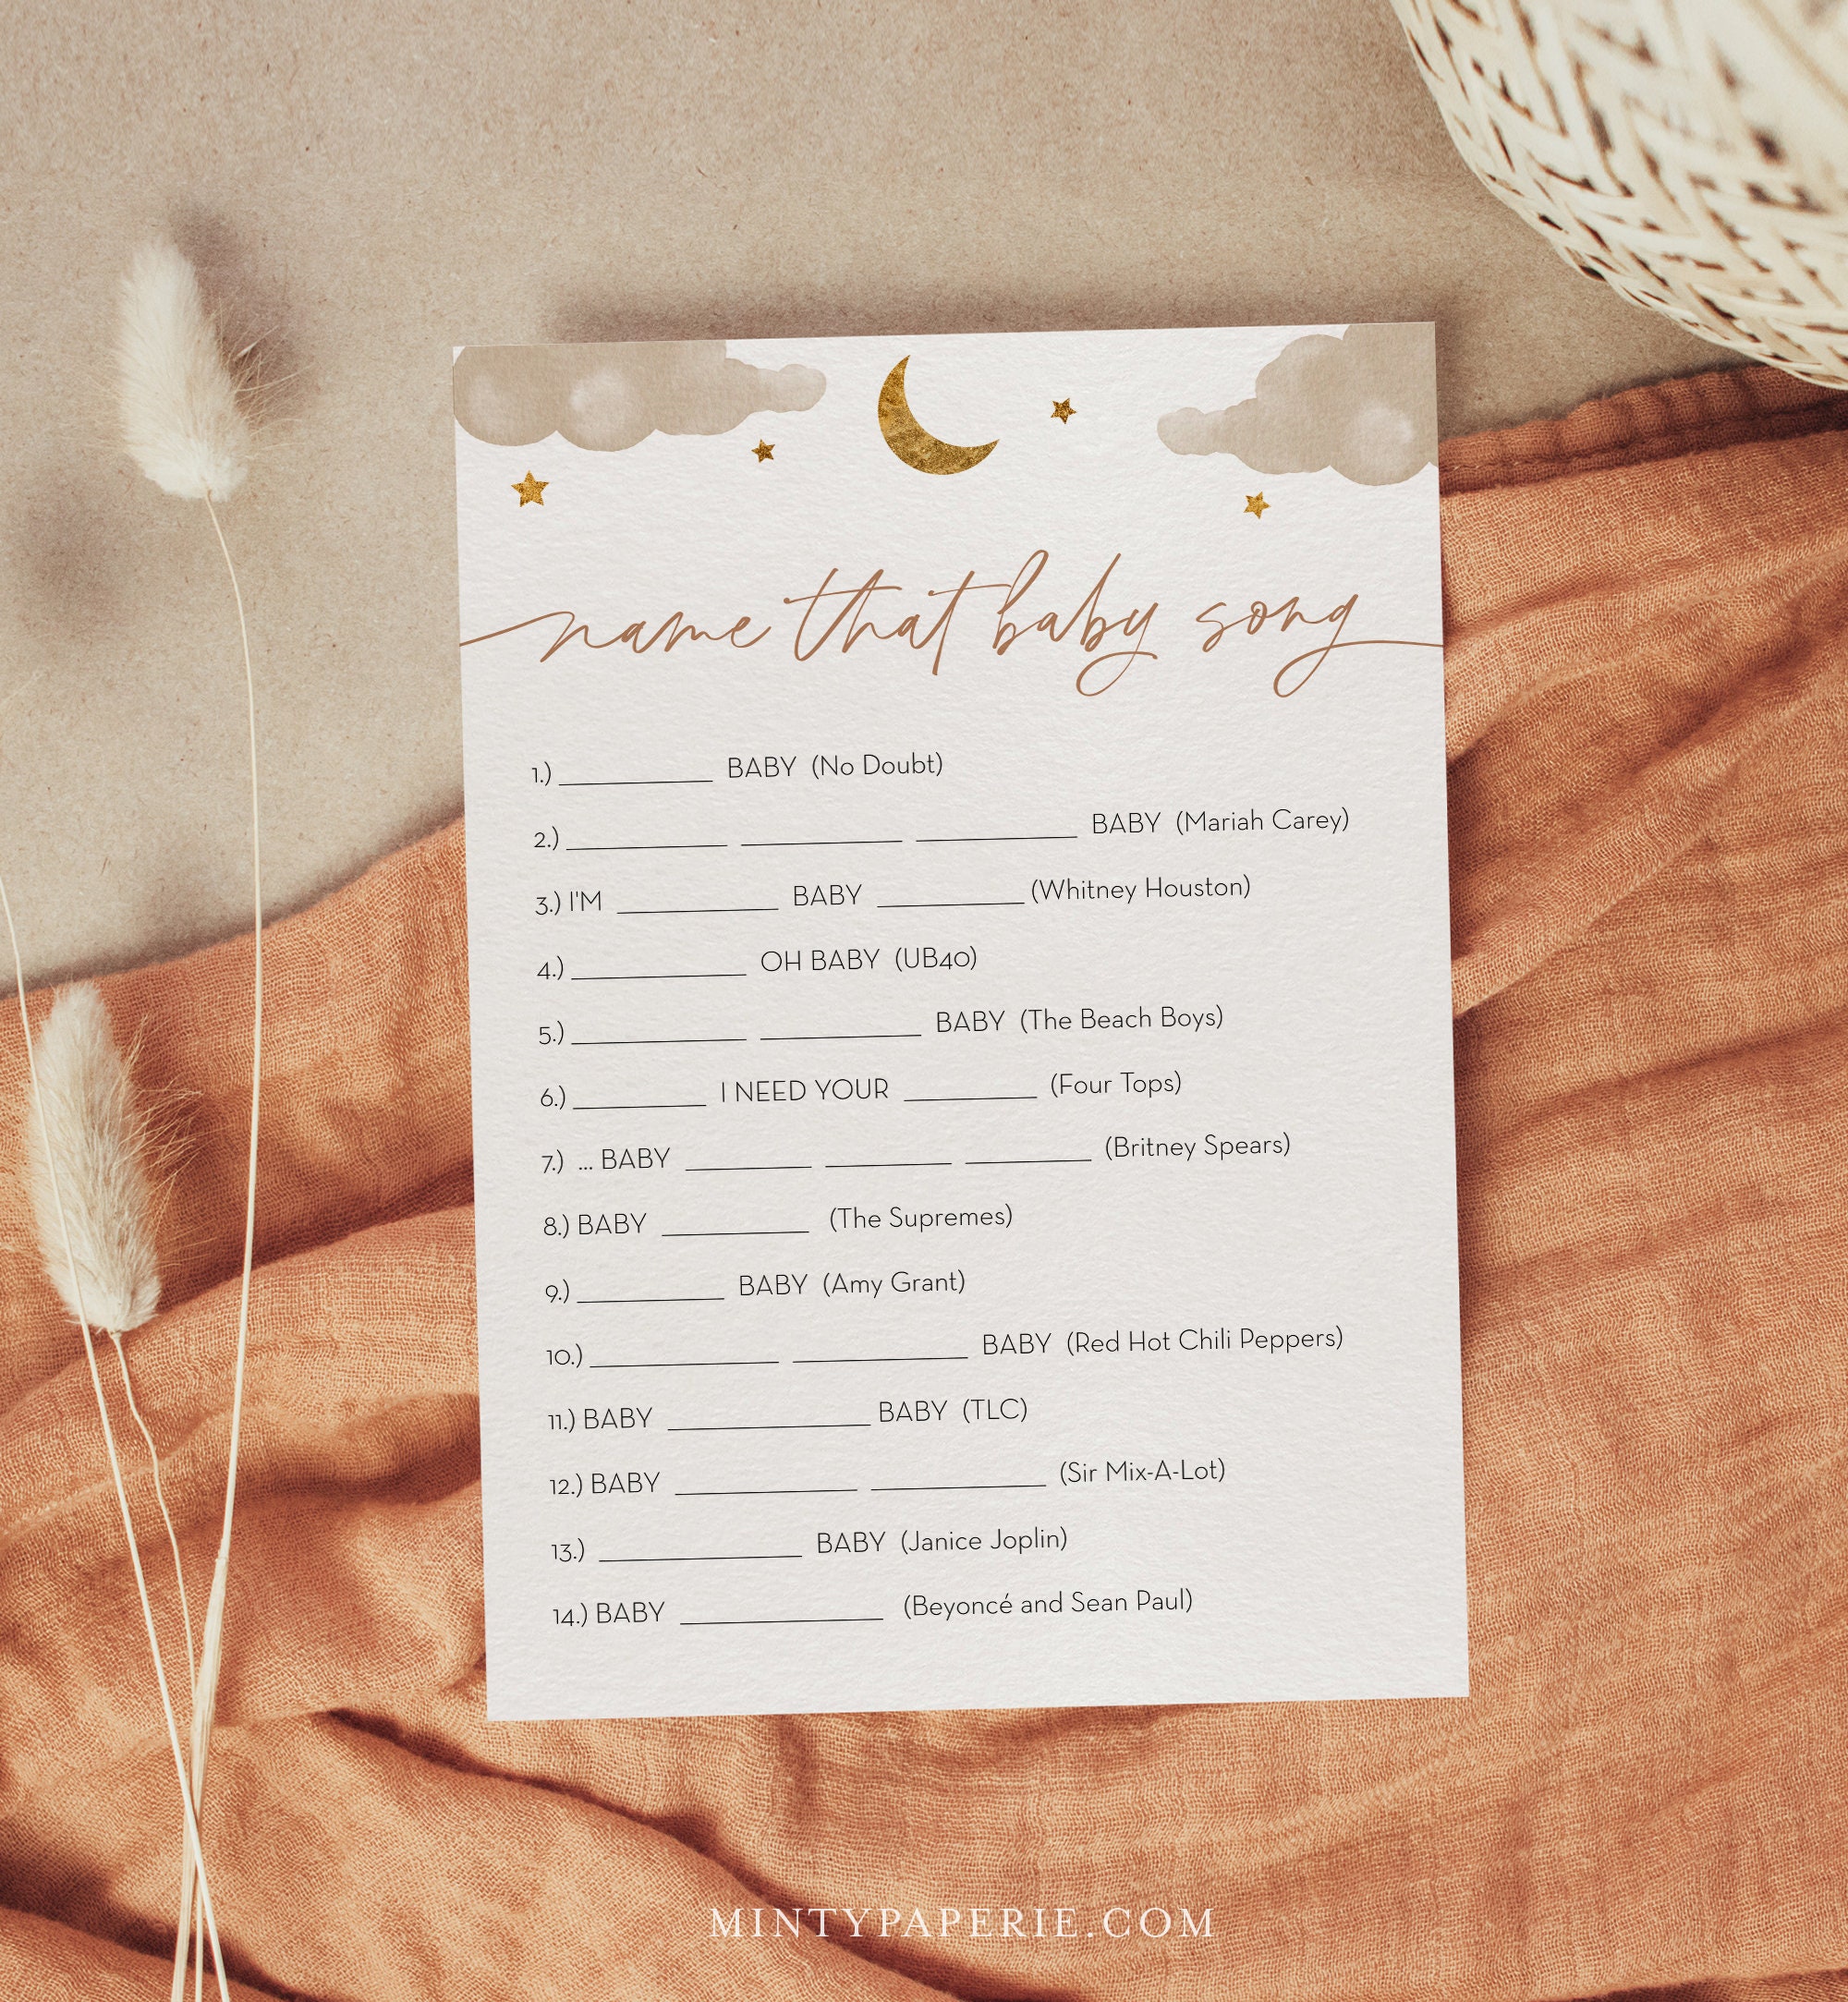 name that baby song
1.) __________ BABY (No Doubt)
2.) __________ __________ __________ BABY (Mariah Carey)
3.) I'M __________ BABY __________ (Whitney Houston)
4.) __________ OH BABY (UB40)
5.) __________ __________ BABY (The Beach Boys)
6.) __________ I NEED YOUR __________ (Four Tops)
7.) ... BABY __________ __________ __________ (Britney Spears)
8.) BABY __________ (The Supremes)
9.) __________ BABY (Amy Grant)
10.) __________ __________ BABY (Red Hot Chili Peppers)
11.) BABY __________ BABY (TLC)
12.) BABY __________ __________ (Sir Mix-A-Lot)
13.) __________ BABY (Janice Joplin)
14.) BABY __________ (Beyoncé and Sean Paul)
MINTYPAPERIE.COM